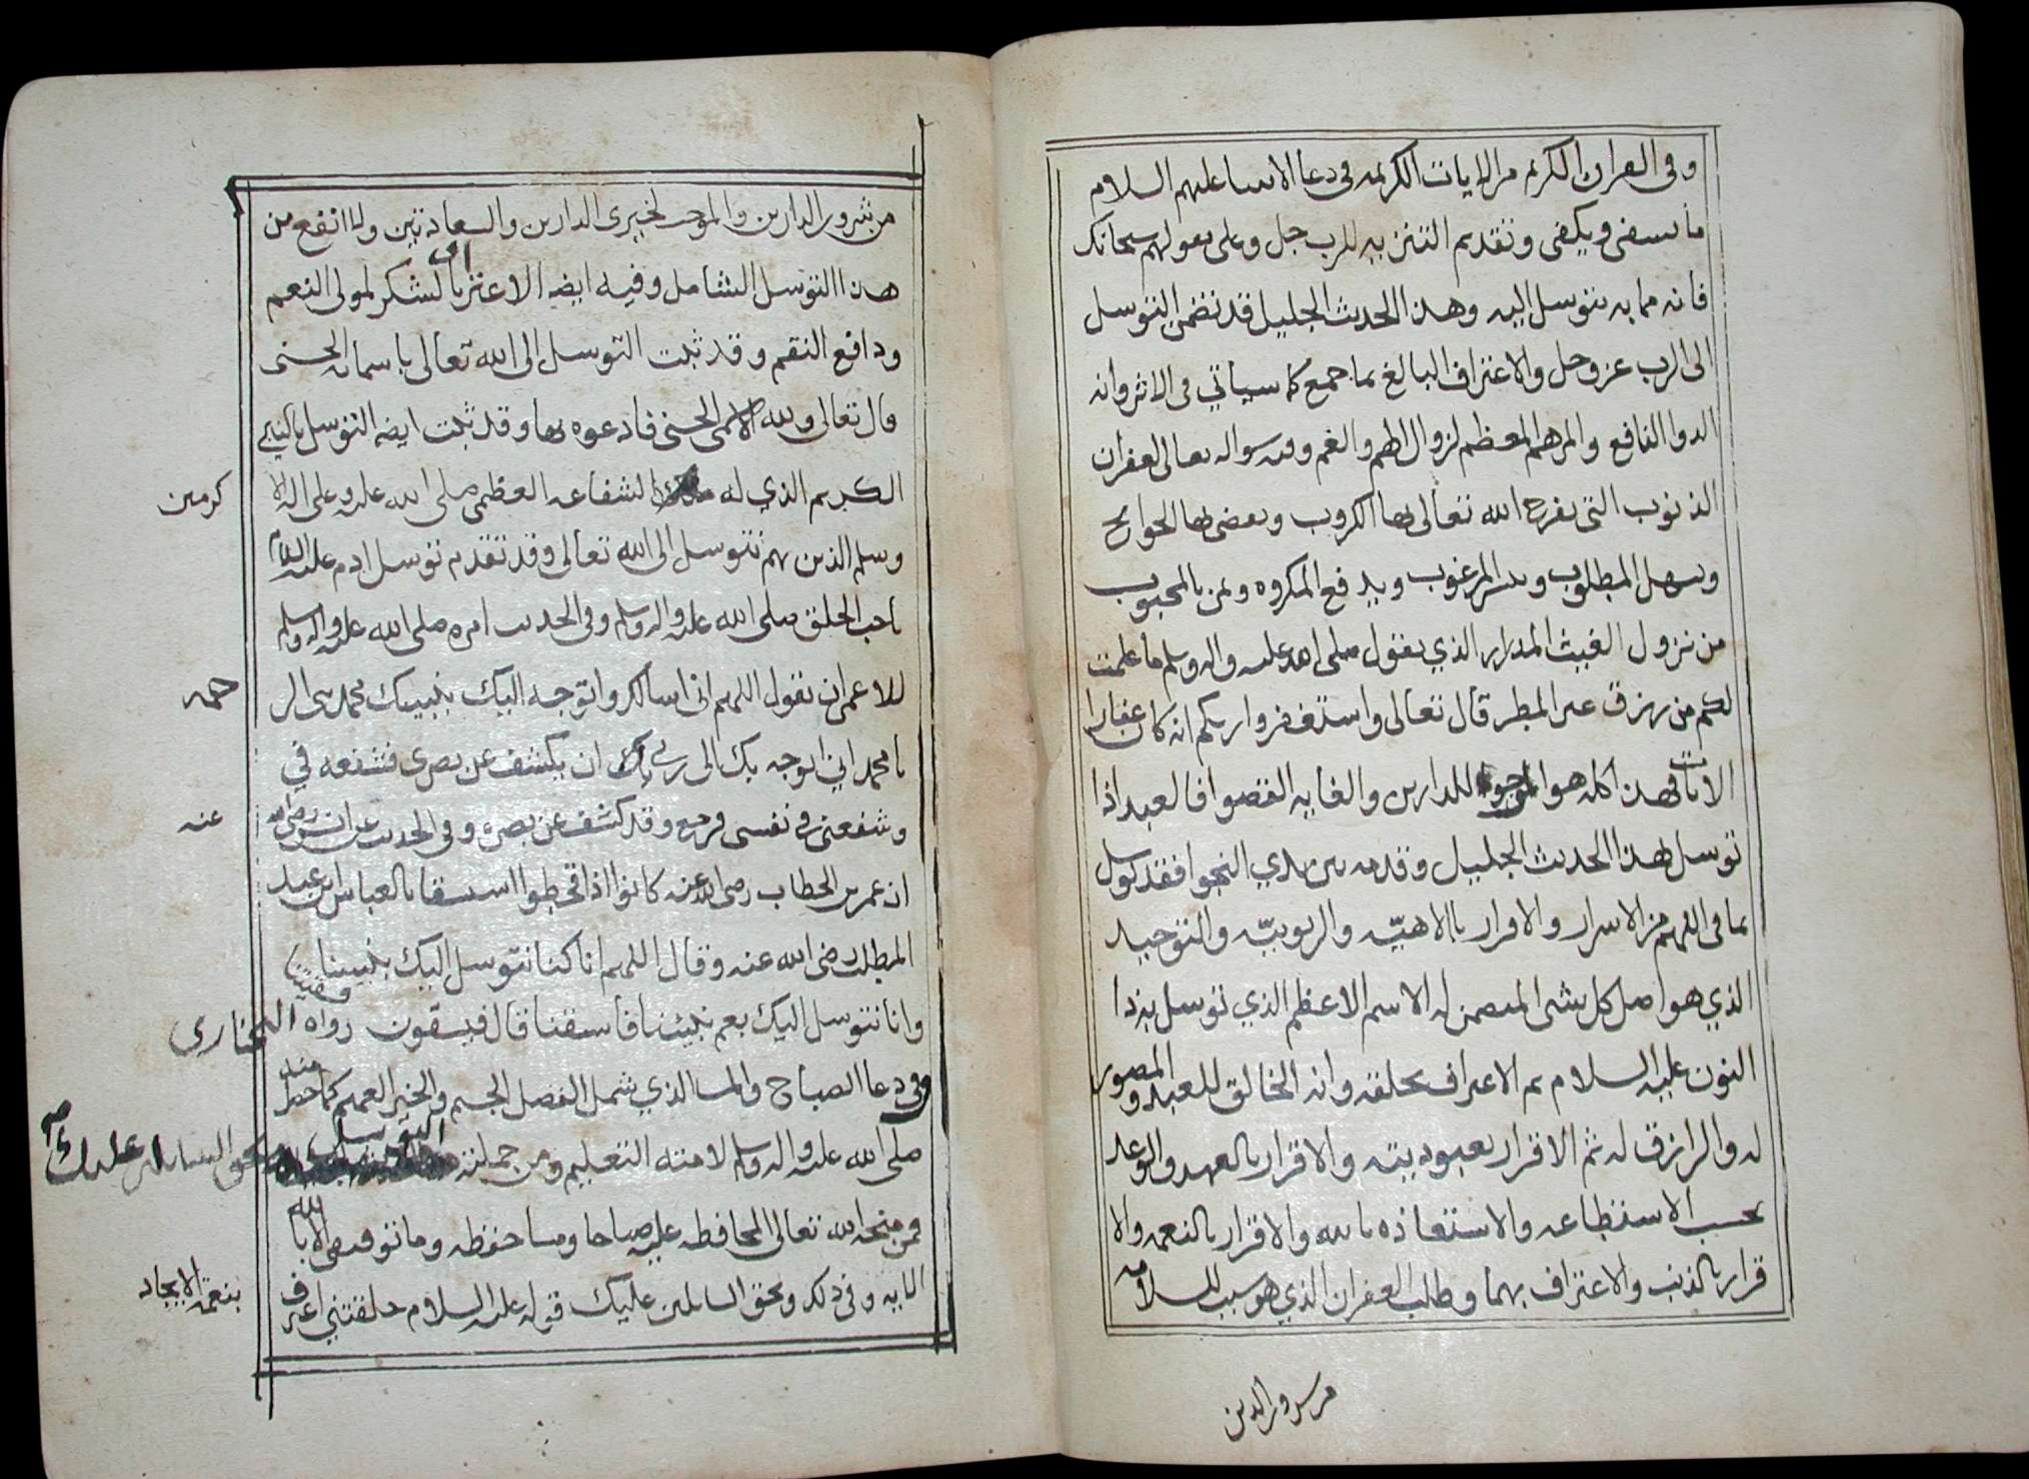 وفى القران الكريم من الايات الكريمه فى دعا الانبيا عليهم السلام
ما يشفى ويكفى وتقديم التنزيه للرب جل وعلى بقولهم سبحانك
فانه مما به يتوسل اليه وهذا الحديث الجليل قد تضمن التوسل
الى الرب عز وجل والاعتراف البالغ بما جمع كما سياتي فى الاثر وانه
الدوا النافع والمرهم المعظم لزوال الهم والغم وفيه سواله تعالى الغفران
الذنوب التى يفرج الله تعالى بها الكروب ويقضى بها الحوايج
ويسهل المطلوب وييسر المرغوب ويدفع المكروه ويمن بالمحبوب
من نزول الغيث المدرار الذي يقول صلى الله عليه واله وسلم ما علمت
لكم من رزق غير المطر قال تعالى واستغفروا ربكم انه كان غفارا
الايات فهذا كله هو للدارين والغايه القصوا فالعبد اذا
توسل بهذا الحديث الجليل وقدمه بين يدي النجوا فقد توسل
بما فى اللهم من الاسرار والاقرار بالالاهيّه والربوبيّه والتوحيد
الذي هو اصل كل شى المتضمن له الاسم الاعظم الذي توسل به ذا
النون عليه السلام ثم الاعتراف بخلقه وانه الخالق للعبد والمصور
له والرازق له ثم الاقرار بعبوديته والاقرار بالعهد والوعد
بحسب الاستطاعه والاستعاذه بالله والاقرار بالنعمه والا
قرار بالذنب والاعتراف بهما وطلب الغفران الذي هو سبب للسلامه
من شرور الدارين
من شرور الدارين والموجب لخيرى الدارين والسعادتين ولا انفع من
هذا التوسل الشامل وفيه ايضه الاعتراف بالشكر لمولى النعم
ودافع النقم وقد ثبت التوسل الى الله تعالى باسمائه الحسنى
قال تعالى ولله الاسمى الحسنى فادعوه بها وقد ثبت ايضه التوسل بالنبي
الكريم الذي له الشفاعه العظمى صلى الله عليه وعلى اله الا
كرمين
وسلم الذين بهم نتوسل الى الله تعالى وقد تقدم توسل ادم عليه السلام
باحب الخلق صلى الله عليه واله وسلم وفى الحديث امره صلى الله عليه واله وسلم
للاعمى ان يقول اللهم انى اسالك واتوجه اليك بنبيك محمد نبى الر
حمه
يا محمد اني اتوجه بك الى ربي ان يكشف عن بصرى فشفعه في
وشفعنى في نفسى فرجع وقد كشف عن بصره وفى الحديث عن انس رضى الله
عنه
ان عمر بن الخطاب رضى الله عنه كانوا اذا قحطوا استسقا بالعباس بن عبد
المطلب رضى الله عنه وقال اللهم انا كنا نتوسل اليك بنبينا فتسقينا
وانا نتوسل اليك بعم نبيئنا فاسقنا قال فيسقون رواه البخارى
وفى دعا الصباح والمسا الذي شمل الفضل الجسيم والخير العميم كما حض
صلى الله عليه واله وسلم لامته التعليم ومن جملته التوسل بحق السايلين عليك
فمن منحه الله تعالى المحافظه عليه صباحا ومسا حفظه وما توفيقى الا بالله
الايه وفى ذلك وبحق السائلين عليك قوله عليه السلام خلقتني اعتراف
بنعمة الايجاد